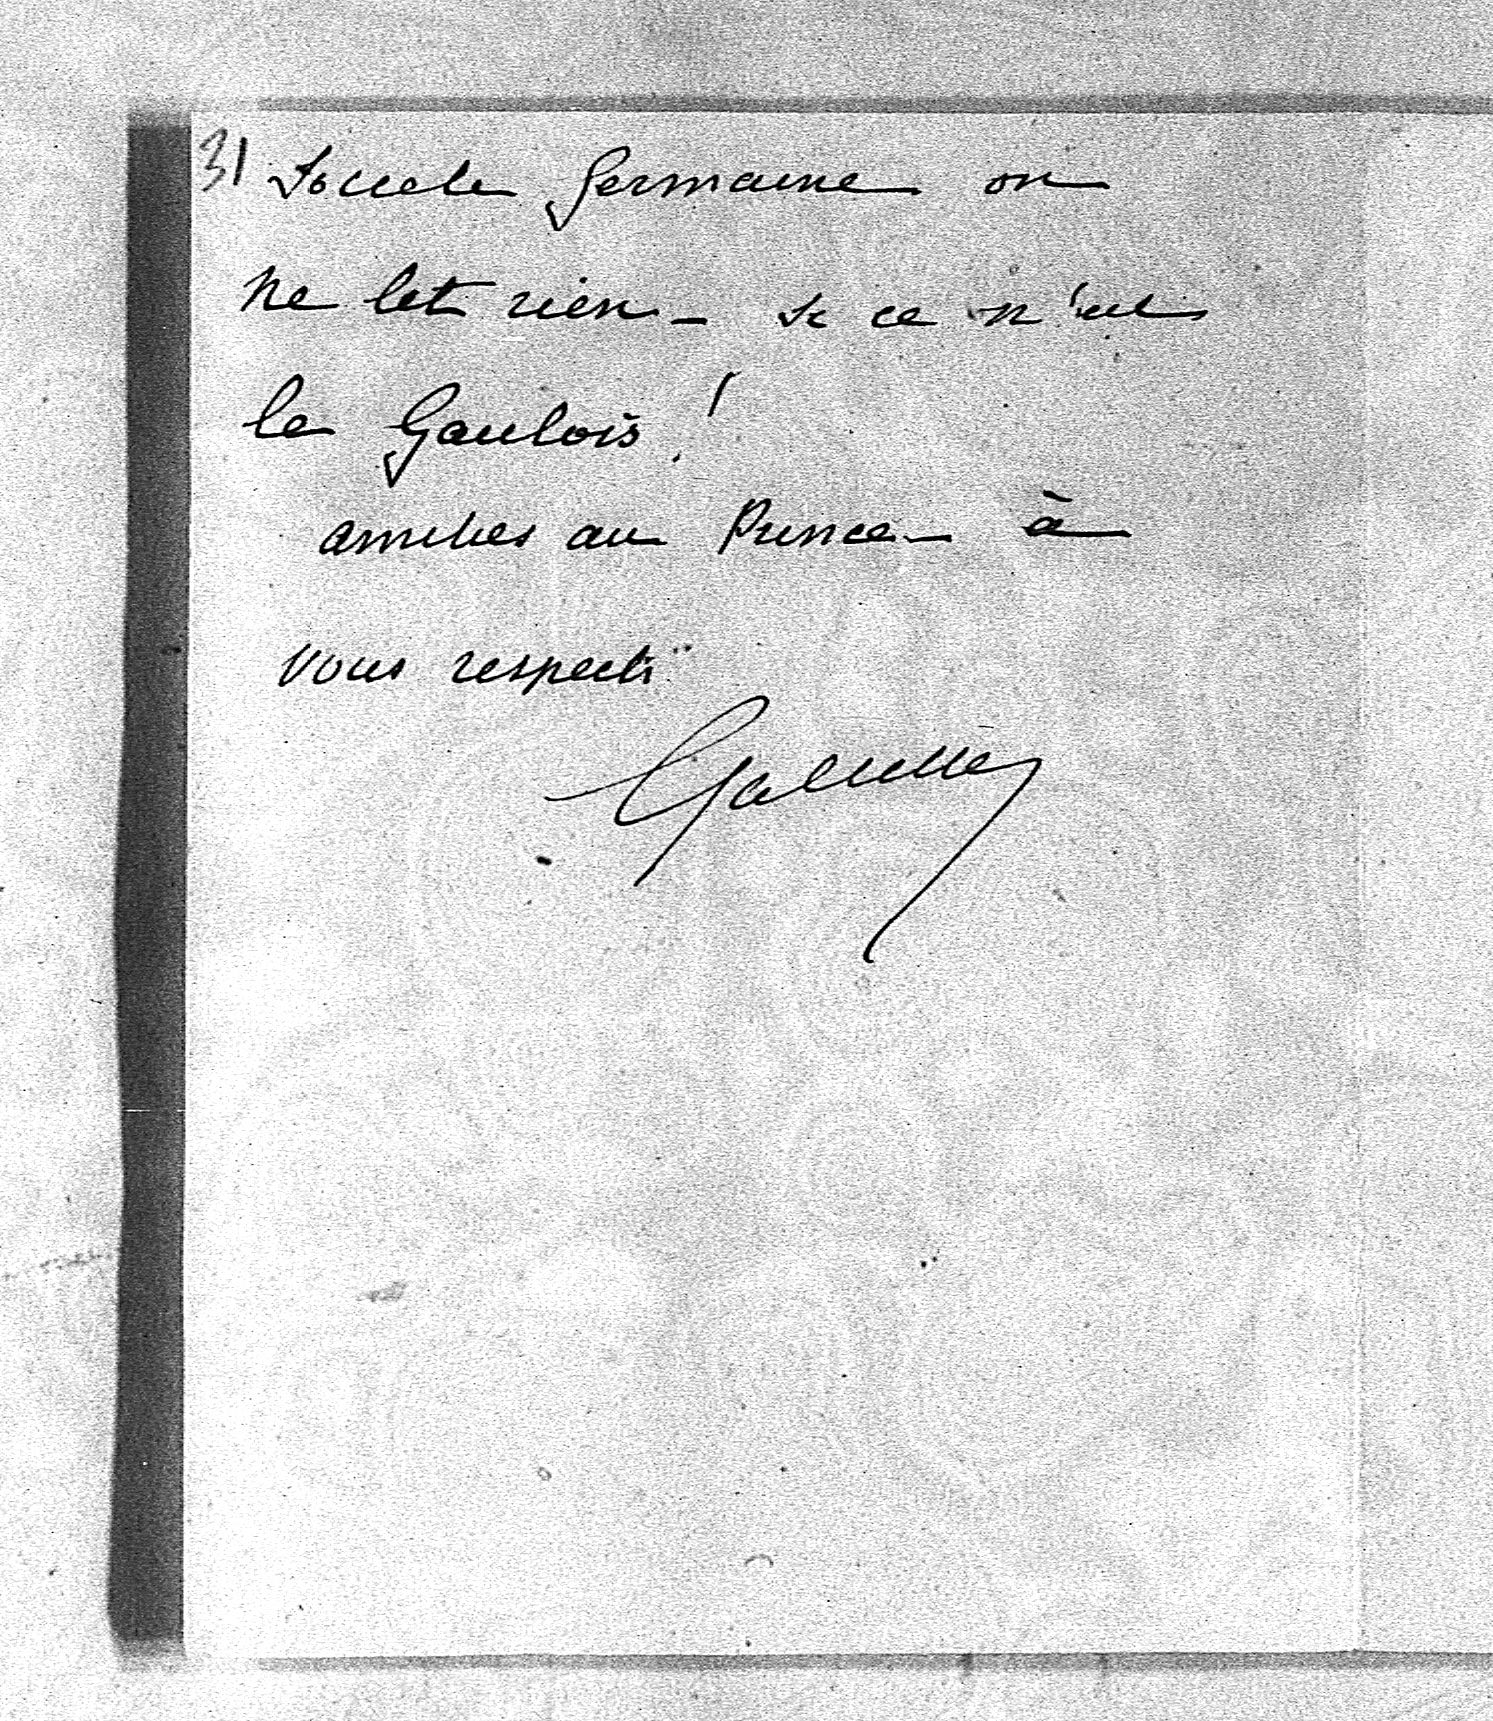 31 Société Germaine on
ne lit rien - si ce n'est
le Gaulois !
amitiés au Prince - à
vous respects
Galliffet